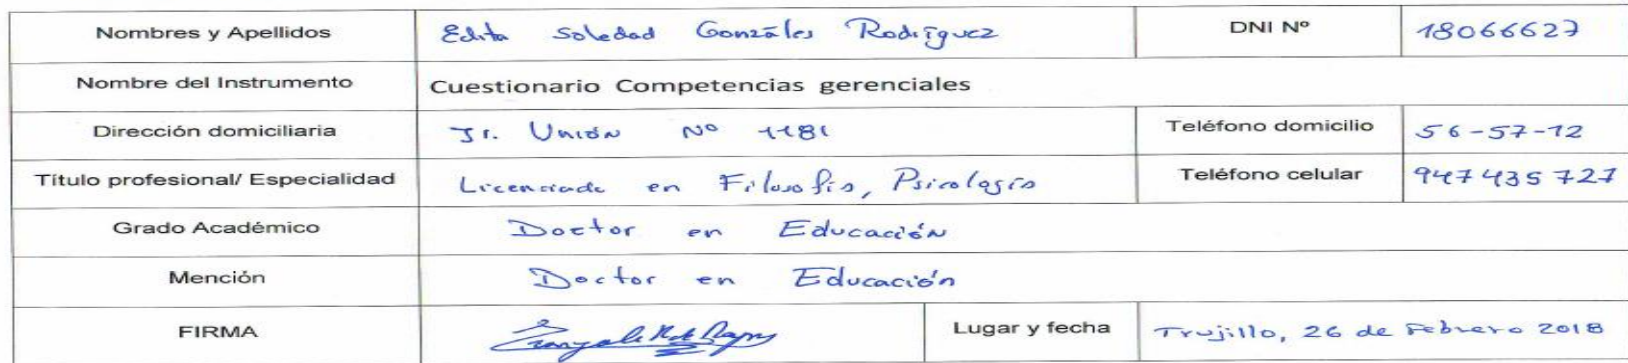 Nombres y Apellidos Edita Soledad Gonzáles Rodríguez DNI Nº 18066627
Nombre del Instrumento Cuestionario Competencias gerenciales
Dirección domiciliaria Jr. Unión Nº 1181 Teléfono domicilio 56-57-12
Título profesional/ Especialidad Licenciada en Filosofía, Psicología Teléfono celular 947435727
Grado Académico Doctor en Educación
Mención Doctor en Educación
FIRMA Lugar y fecha Trujillo, 26 de Febrero 2018